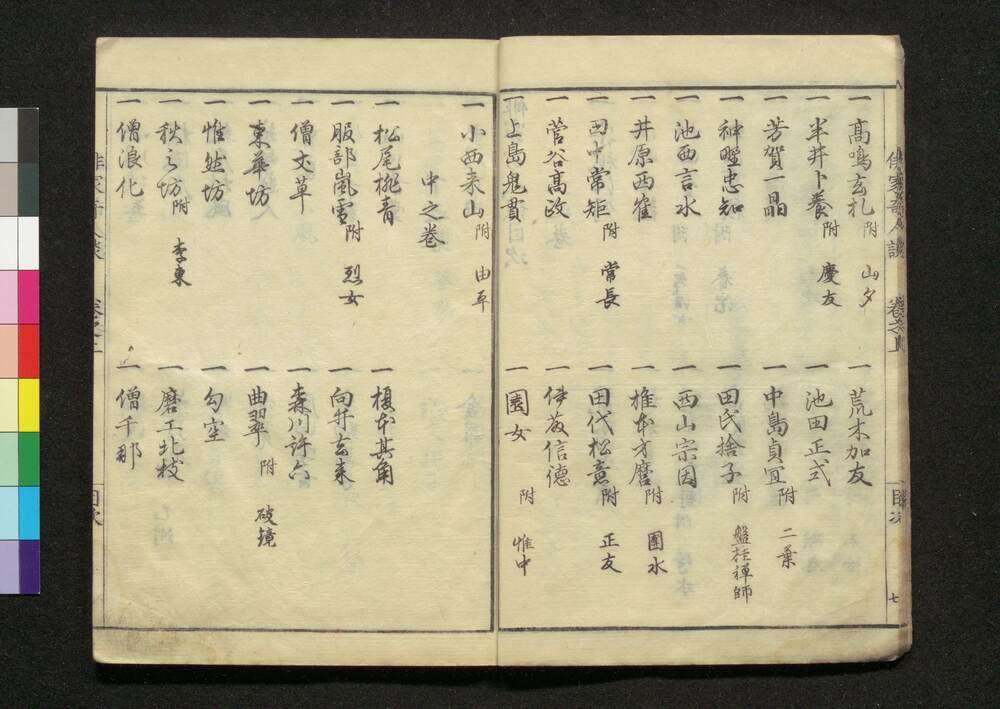 一 高嶋玄札 附 山夕
一 荒木加友
一 半井卜養 附 慶友
一 池田正式
一 芳賀一晶
一 中島貞宜 附 二葉
一 神野忠知
一 田氏捨子 附 盤珪禅師
一 池西言水
一 西山宗因
一 井原西鶴
一 椎本才麿 附 團水
一 田中常矩 附 常長
一 田代松意 附 正友
一 菅谷高政
一 伊藤信德
一 上島鬼貫
一 園女 附 惟中
一 小西来山 附 由平
中之卷
一 松尾桃青
一 榎本其角
一 服部嵐雪 附 烈女
一 向井去来
一 僧丈草
一 森川許六
一 東華坊
一 曲翠 附 破鏡
一 惟然坊
一 勾空
一 秋之坊 附 李東
一 磨工北枝
一 僧浪化
一 僧千那
俳家奇人談 卷之上 目次 七